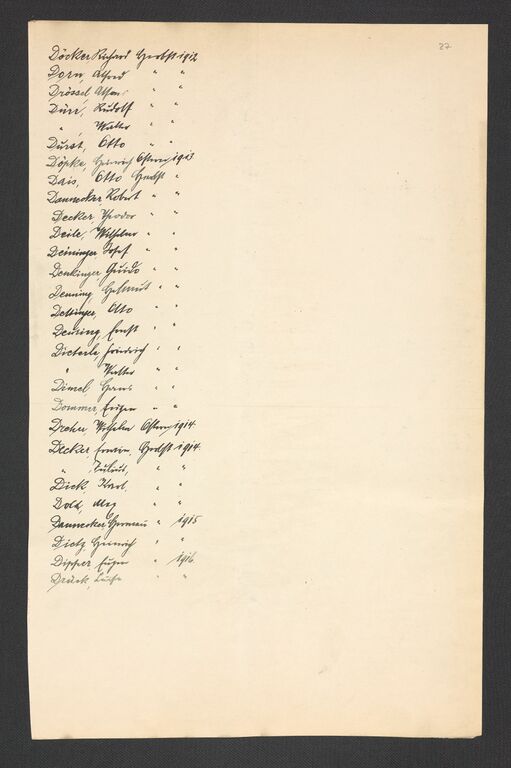 27
Döcker Richard Herbst 1912
Dorn, Alfred " "
Drössel, Alfons " "
Dürr, Rudolf " "
" , Walter " "
Durst, Otto " "
Döpke, Heinrich Ostern 1913
Dais, Otto Herbst "
Dannecker, Robert " "
Decker, Theodor " "
Deile, Wilhelm " "
Deininger, Josef " "
Denkinger Guido " "
Denning, Helmut " "
Dettinger, Otto " "
Deuring, Ernst " "
Dieterle, Friedrich " "
" Walter " "
Dimel Hans " "
Dommer, Eugen " "
Dreher, Wilhelm Ostern 1914.
Decker, Erwin, Herbst 1914.
" , " "
Dick, Karl, " "
Dold, Max " "
Dannecker Hermann " 1915
Dietz Heinrich " "
Dipper, Eugen " 1916
Drück, " "